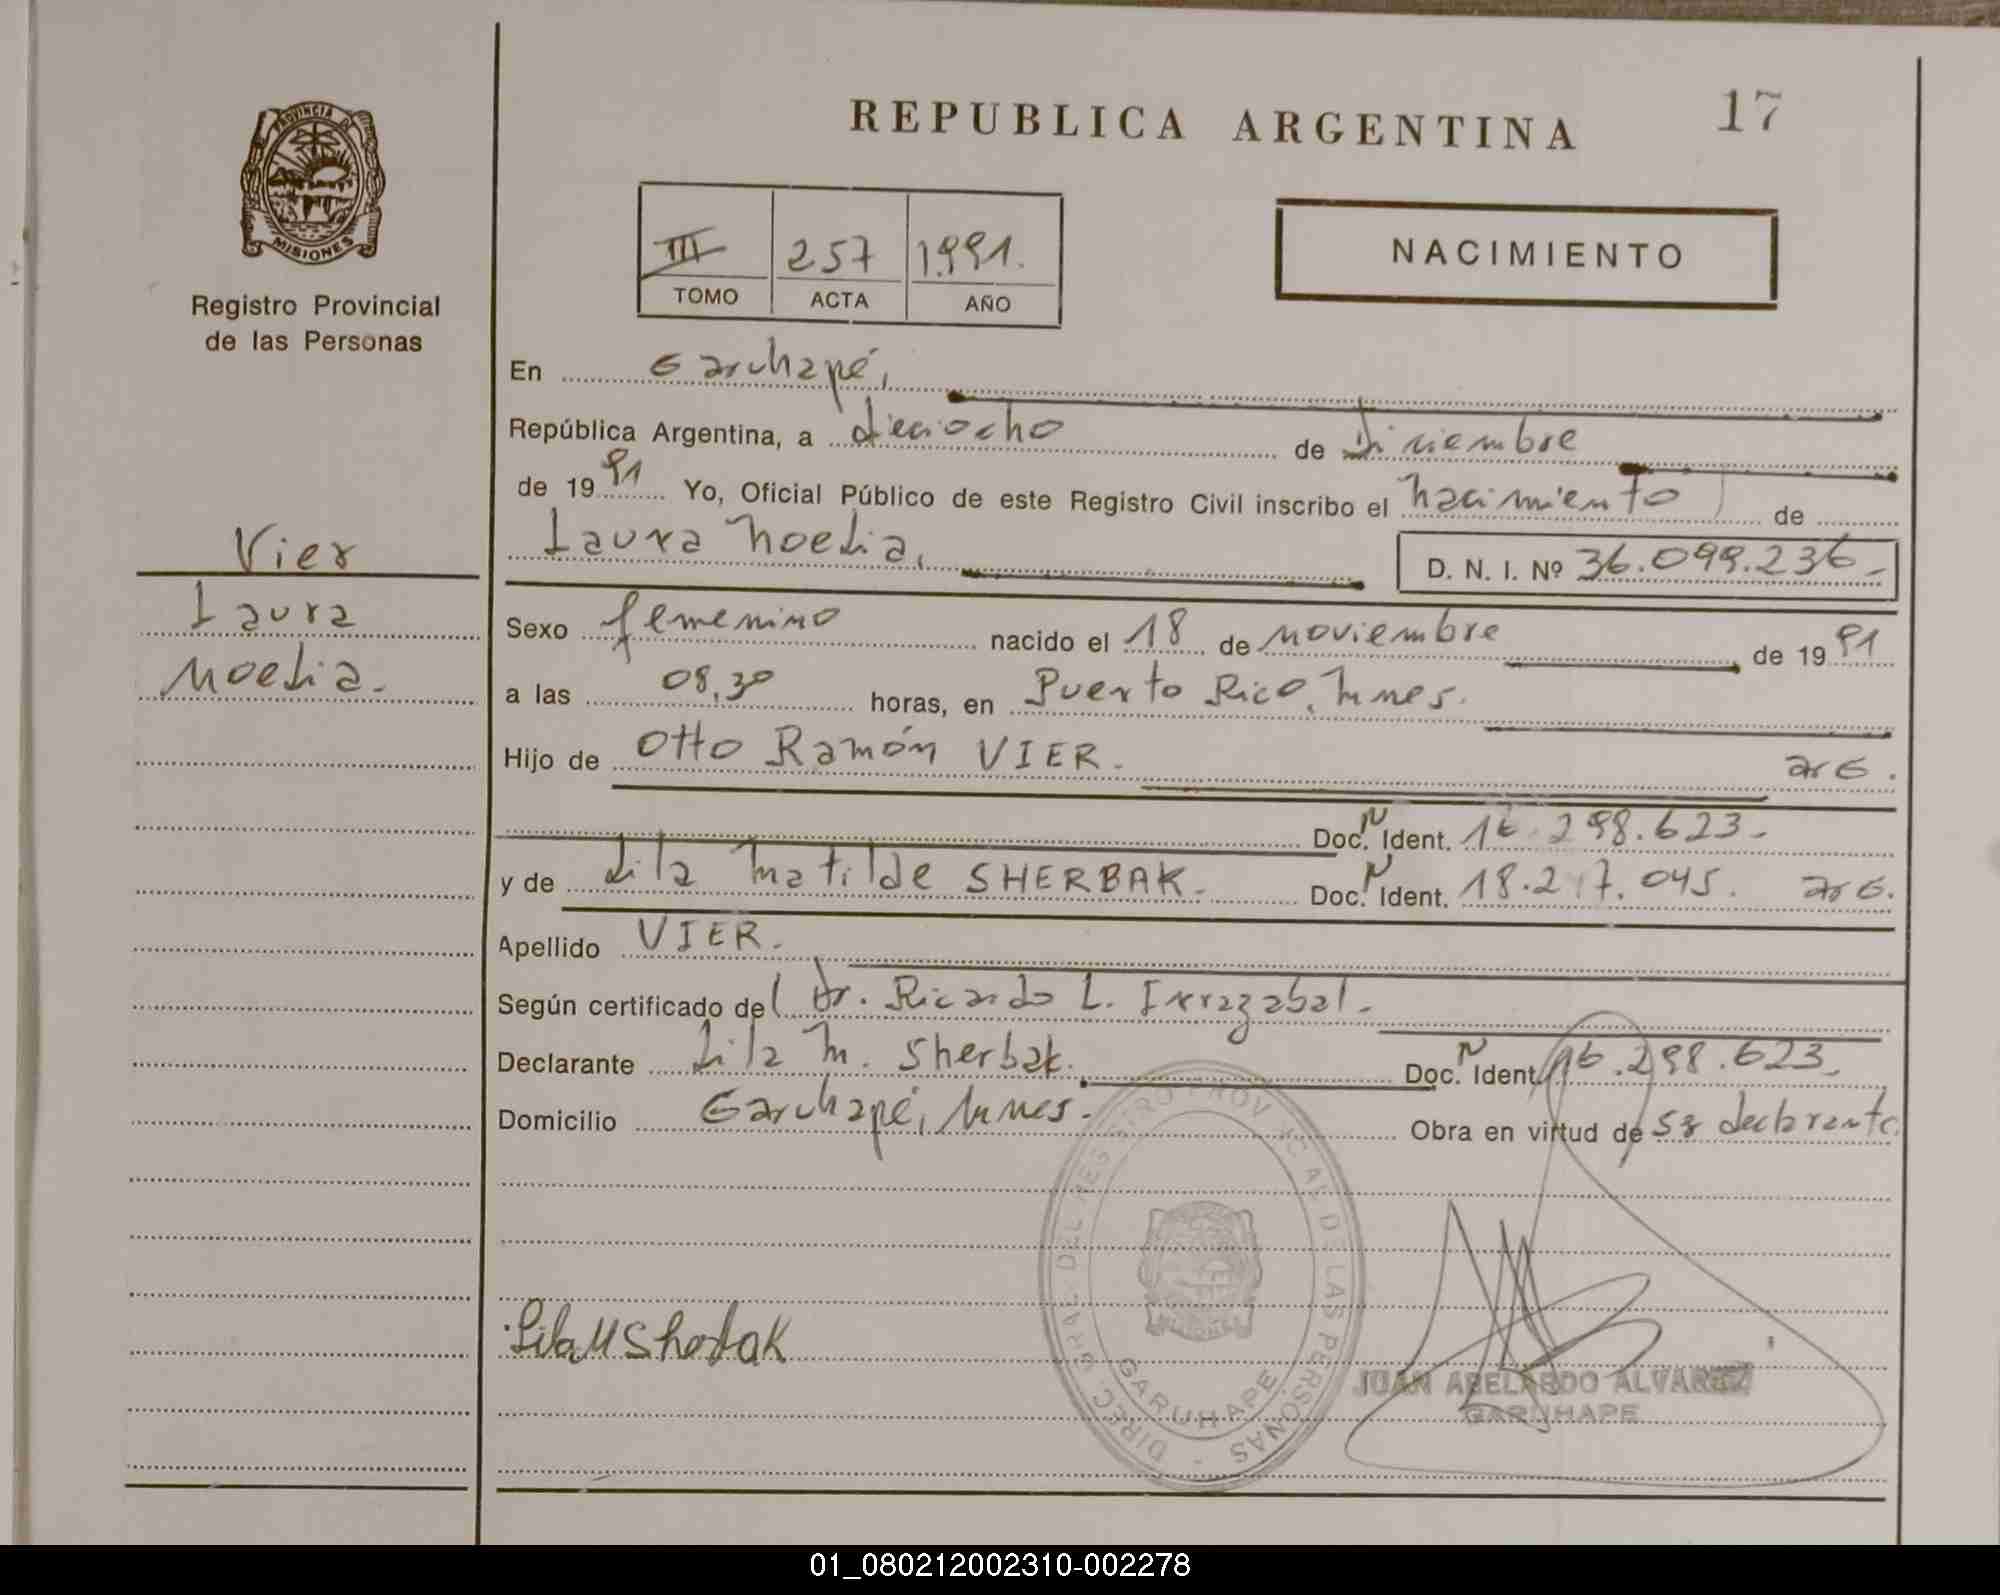 REPUBLICA ARGENTINA
17
PROVINCIA DE
MISIONES
Registro Provincial
de las Personas
III 257 1.991.
TOMO ACTA AÑO
NACIMIENTO
En Garuhapé,
República Argentina, a dieciocho de Diciembre
de 1991 Yo, Oficial Público de este Registro Civil inscribo el nacimiento de
Laura Noelia, D. N. I. Nº 36.099.236-
Vier
Laura
Noelia.
Sexo femenino nacido el 18 de noviembre de 1991
a las 08,30 horas, en Puerto Rico, Mnes.
Hijo de Otto Ramón VIER. arg.
Doc. N Ident. 16.298.623-
y de Lila Matilde SHERBAK. Doc. N Ident. 18.217.045. arg.
Apellido VIER.
Según certificado del Dr. Ricardo L. Irrazabal.
Declarante Lila M. Sherbak. Doc. N Ident. 16.298.623-
Domicilio Garuhapé, Mnes. Obra en virtud de ser declarante
DIREC GRAL. DEL REGISTRO PROV DE LAS PERSONAS
MISIONES
GARUHAPE
Lila M Sherbak
JUAN ABELARDO ALVAREZ
GARUHAPE
01_080212002310-002278